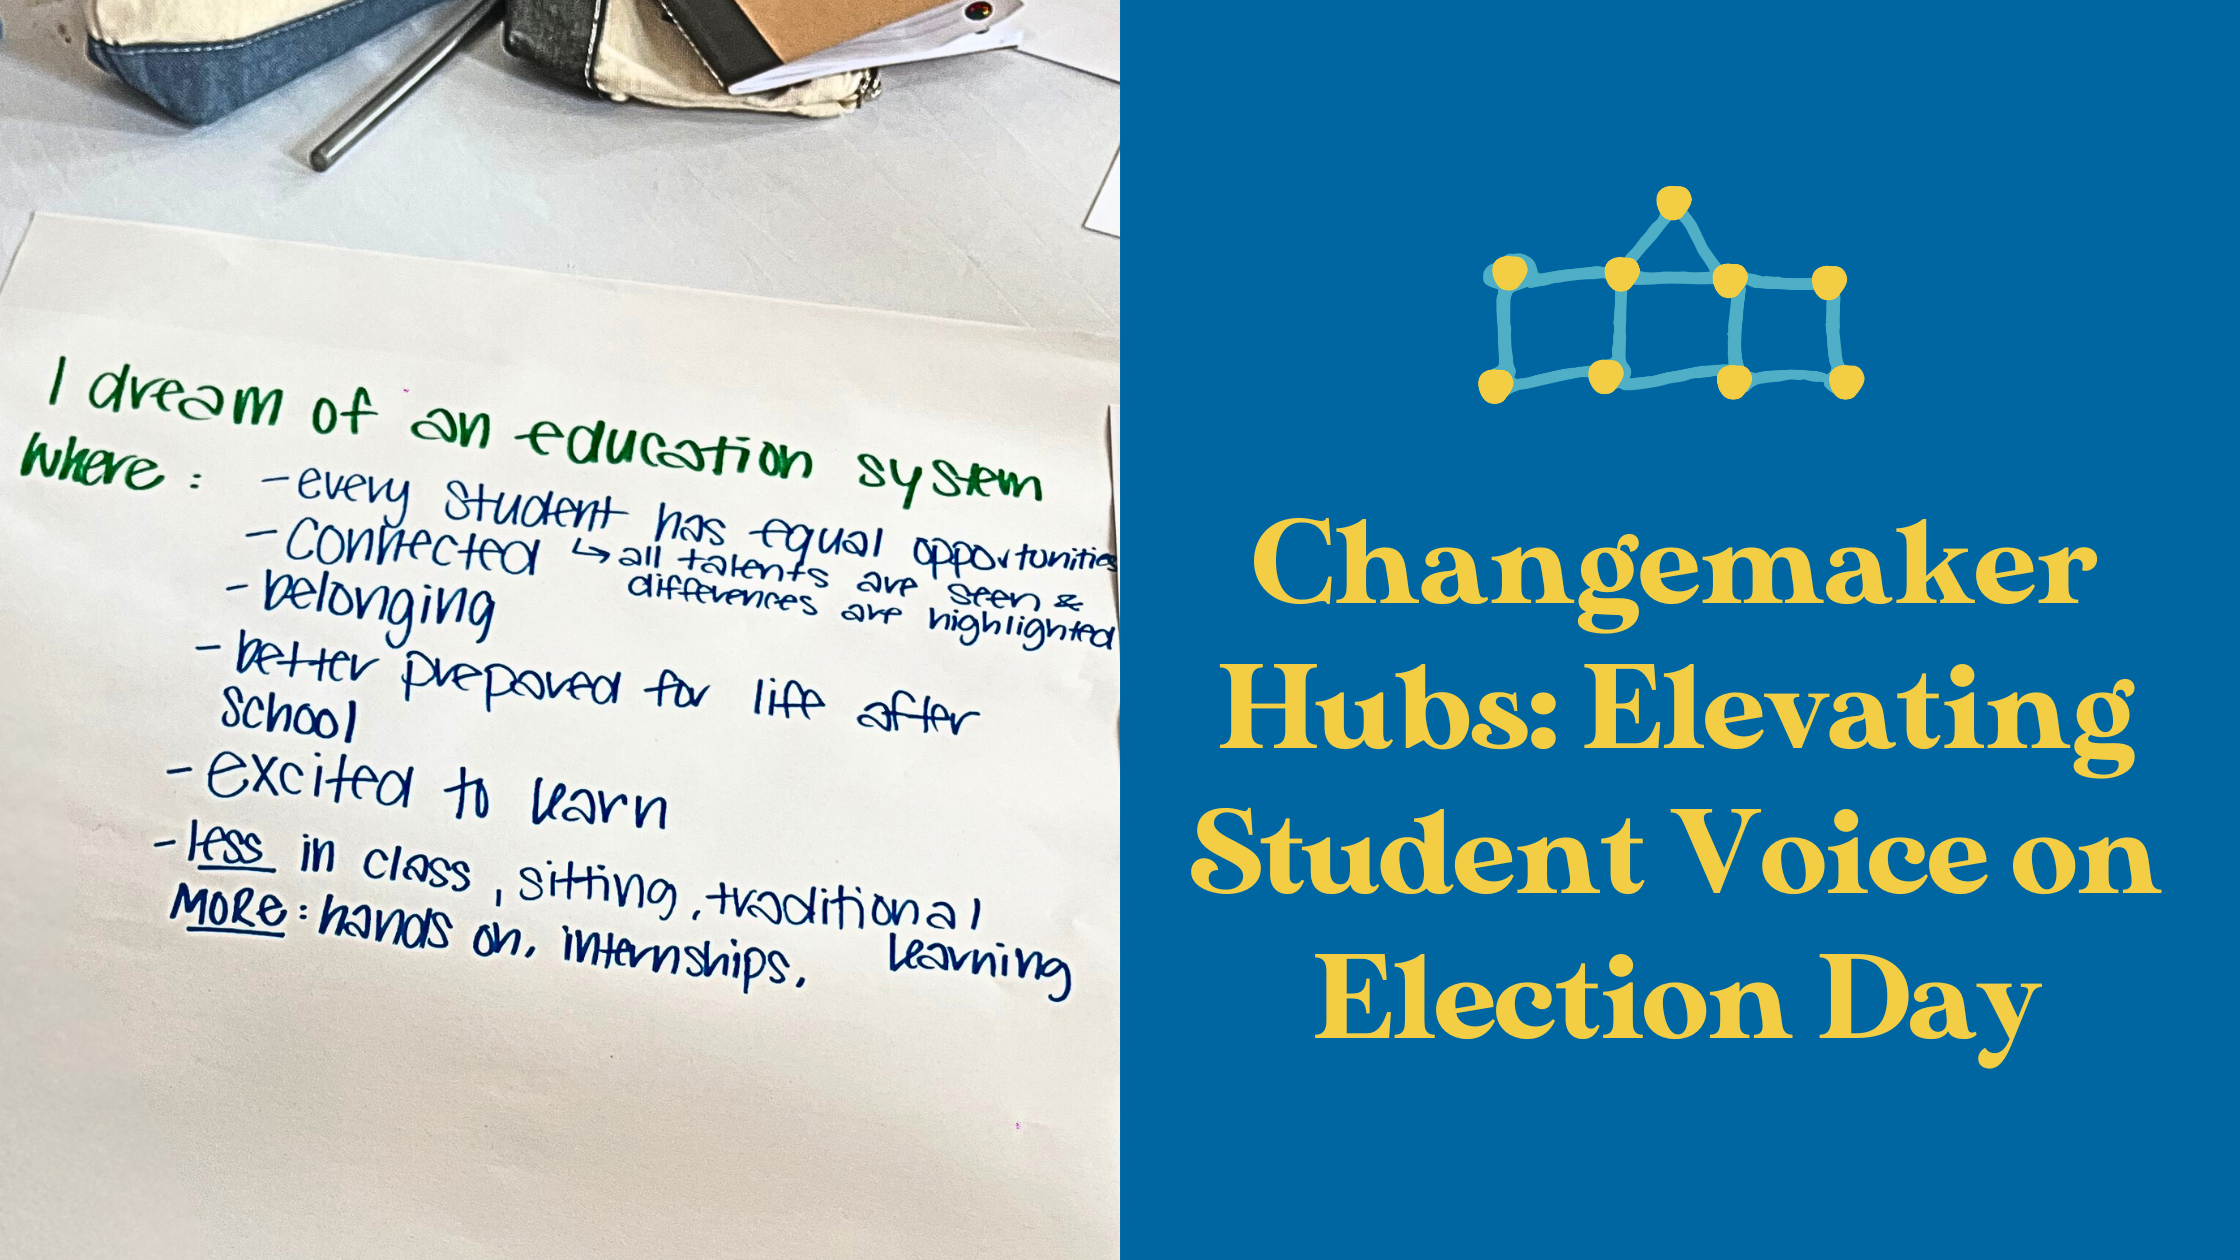 I dream of an education system
where:
- every student has equal opportunities
↳ all talents are seen &
differences are highlighted
- connected
- belonging
- better prepared for life after
school
- excited to learn
- less in class, sitting, traditional
learning
MORE: hands on, internships,
Changemaker
Hubs: Elevating
Student Voice on
Election Day